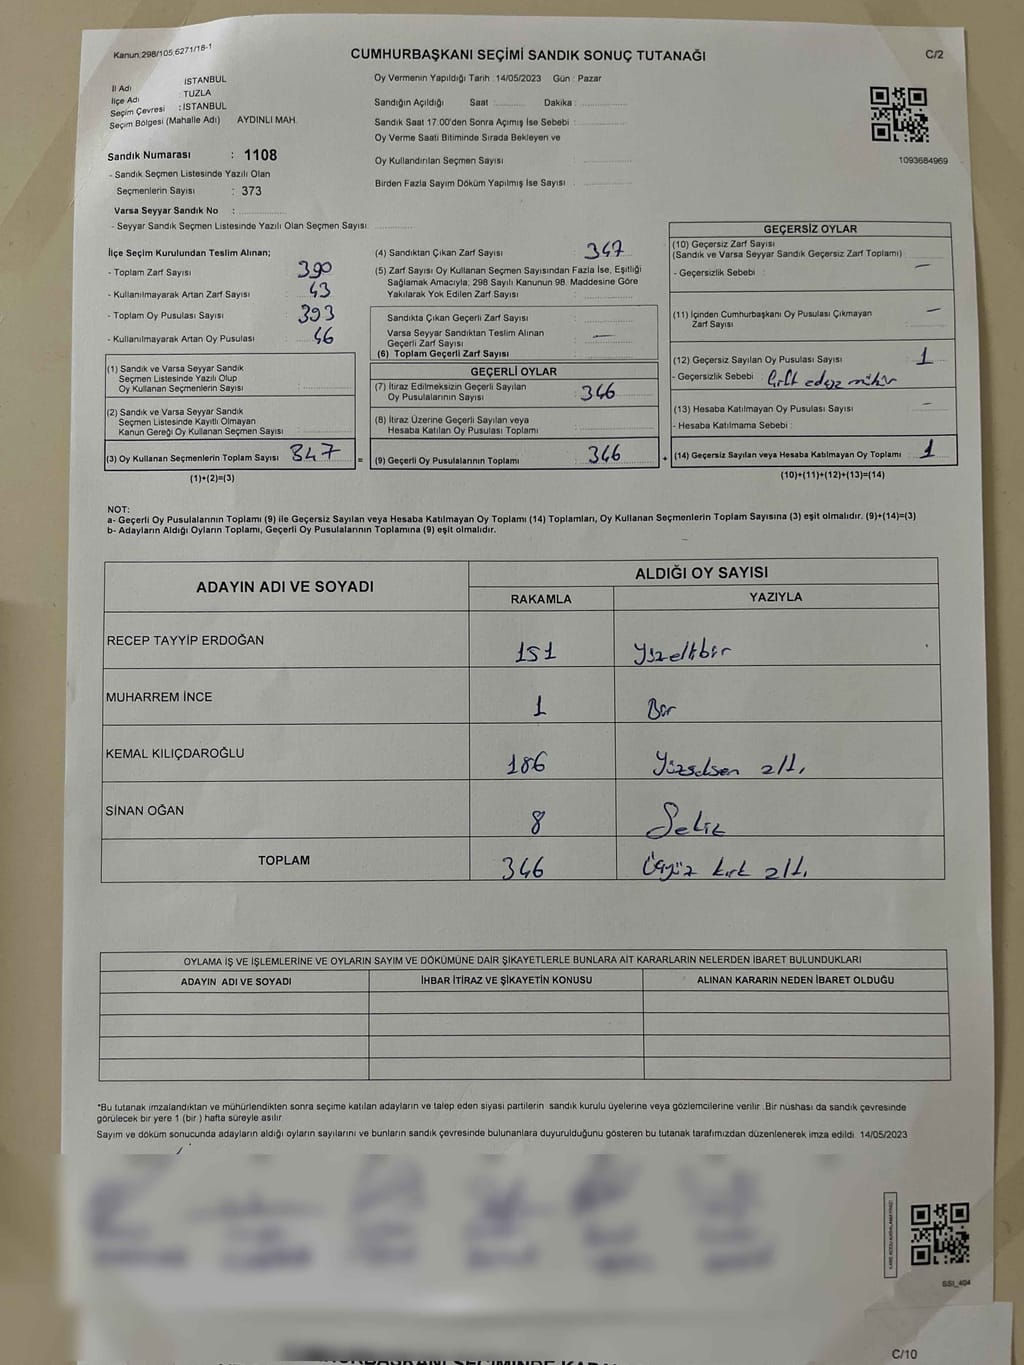 Kanun:298/105,6271/18-1
CUMHURBAŞKANI SEÇİMİ SANDIK SONUÇ TUTANAĞI
C/2
İl Adı İSTANBUL
İlçe Adı TUZLA
Seçim Çevresi : İSTANBUL
Seçim Bölgesi (Mahalle Adı) AYDINLI MAH.
Oy Vermenin Yapıldığı Tarih : 14/05/2023 Gün : Pazar
Sandığın Açıldığı Saat Dakika :
Sandık Saat 17:00'den Sonra Açımış İse Sebebi :
Oy Verme Saati Bitiminde Sırada Bekleyen ve
Oy Kullandırılan Seçmen Sayısı :
Birden Fazla Sayım Döküm Yapılmış İse Sayısı :
1093684969
Sandık Numarası : 1108
- Sandık Seçmen Listesinde Yazılı Olan
Seçmenlerin Sayısı : 373
Varsa Seyyar Sandık No :
- Seyyar Sandık Seçmen Listesinde Yazılı Olan Seçmen Sayısı :
İlçe Seçim Kurulundan Teslim Alınan;
- Toplam Zarf Sayısı : 390
- Kullanılmayarak Artan Zarf Sayısı : 43
- Toplam Oy Pusulası Sayısı : 393
- Kullanılmayarak Artan Oy Pusulası : 46
(1) Sandık ve Varsa Seyyar Sandık
Seçmen Listesinde Yazılı Olup
Oy Kullanan Seçmenlerin Sayısı :
(2) Sandık ve Varsa Seyyar Sandık
Seçmen Listesinde Kayıtlı Olmayan
Kanun Gereği Oy Kullanan Seçmen Sayısı :
(3) Oy Kullanan Seçmenlerin Toplam Sayısı 347 =
(1)+(2)=(3)
(4) Sandıktan Çıkan Zarf Sayısı : 347
(5) Zarf Sayısı Oy Kullanan Seçmen Sayısından Fazla İse, Eşitliği
Sağlamak Amacıyla; 298 Sayılı Kanunun 98. Maddesine Göre
Yakılarak Yok Edilen Zarf Sayısı :
Sandıkta Çıkan Geçerli Zarf Sayısı :
Varsa Seyyar Sandıktan Teslim Alınan
Geçerli Zarf Sayısı : —
(6) Toplam Geçerli Zarf Sayısı :
GEÇERLİ OYLAR
(7) İtiraz Edilmeksizin Geçerli Sayılan
Oy Pusulalarının Sayısı : 346
(8) İtiraz Üzerine Geçerli Sayılan veya
Hesaba Katılan Oy Pusulası Toplamı :
(9) Geçerli Oy Pusulalarının Toplamı : 346 +
GEÇERSİZ OYLAR
(10) Geçersiz Zarf Sayısı
(Sandık ve Varsa Seyyar Sandık Geçersiz Zarf Toplamı) :
- Geçersizlik Sebebi : —
(11) İçinden Cumhurbaşkanı Oy Pusulası Çıkmayan
Zarf Sayısı : —
(12) Geçersiz Sayılan Oy Pusulası Sayısı : 1
- Geçersizlik Sebebi : mühür
(13) Hesaba Katılmayan Oy Pusulası Sayısı : —
- Hesaba Katılmama Sebebi :
(14) Geçersiz Sayılan veya Hesaba Katılmayan Oy Toplamı : 1
(10)+(11)+(12)+(13)=(14)
NOT:
a- Geçerli Oy Pusulalarının Toplamı (9) ile Geçersiz Sayılan veya Hesaba Katılmayan Oy Toplamı (14) Toplamları, Oy Kullanan Seçmenlerin Toplam Sayısına (3) eşit olmalıdır. (9)+(14)=(3)
b- Adayların Aldığı Oyların Toplamı, Geçerli Oy Pusulalarının Toplamına (9) eşit olmalıdır.
ADAYIN ADI VE SOYADI ALDIĞI OY SAYISI
RAKAMLA YAZIYLA
RECEP TAYYİP ERDOĞAN 151 Yüzellibir
MUHARREM İNCE 1 Bir
KEMAL KILIÇDAROĞLU 186 Yüzseksen altı
SİNAN OĞAN 8 Sekiz
TOPLAM 346 Üçyüz kırk altı
OYLAMA İŞ VE İŞLEMLERİNE VE OYLARIN SAYIM VE DÖKÜMÜNE DAİR ŞİKAYETLERLE BUNLARA AİT KARARLARIN NELERDEN İBARET BULUNDUKLARI
ADAYIN ADI VE SOYADI İHBAR İTİRAZ VE ŞİKAYETİN KONUSU ALINAN KARARIN NEDEN İBARET OLDUĞU
*Bu tutanak imzalandıktan ve mühürlendikten sonra seçime katılan adayların ve talep eden siyasi partilerin sandık kurulu üyelerine veya gözlemcilerine verilir .Bir nüshası da sandık çevresinde
görülecek bir yere 1 (bir ) hafta süreyle asılır.
Sayım ve döküm sonucunda adayların aldığı oyların sayılarını ve bunların sandık çevresinde bulunanlara duyurulduğunu gösteren bu tutanak tarafımızdan düzenlenerek imza edildi. 14/05/2023
SSI_404
C/10